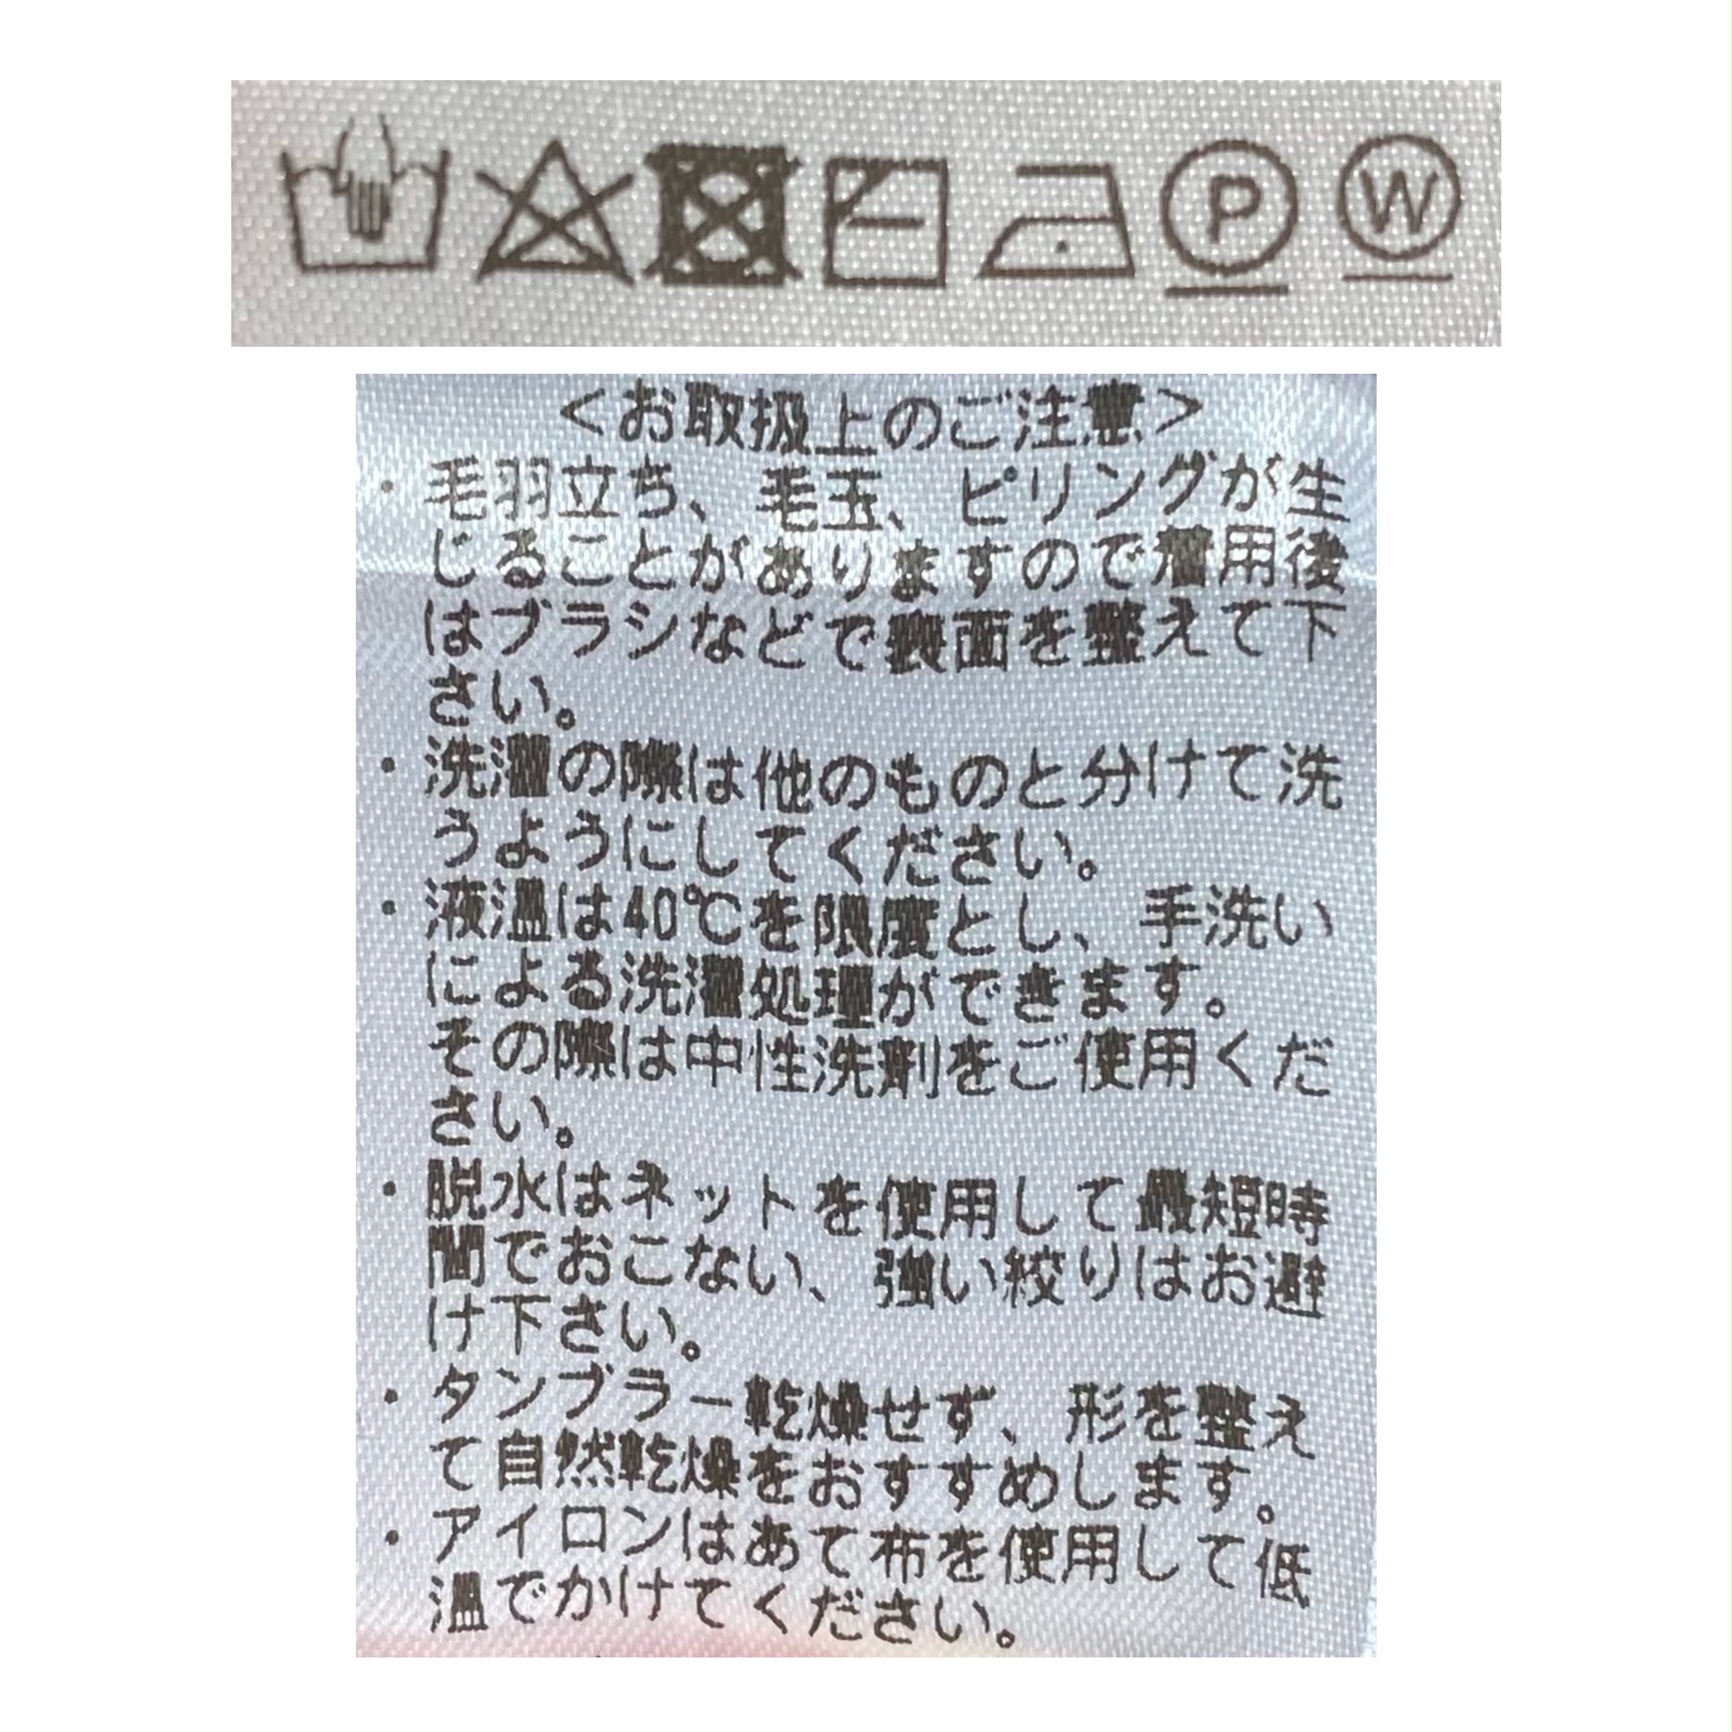 P W
<お取扱上のご注意>
・毛羽立ち、毛玉、ピリングが生
じることがありますので着用後
はブラシなどで表面を整えて下
さい。
・洗濯の際は他のものと分けて洗
うようにしてください。
・液温は40℃を限度とし、手洗い
による洗濯処理ができます。
その際は中性洗剤をご使用くだ
さい。
・脱水はネットを使用して最短時
間でおこない、強い絞りはお避
け下さい。
・タンブラー乾燥せず、形を整え
て自然乾燥をおすすめします。
・アイロンはあて布を使用して低
温でかけてください。